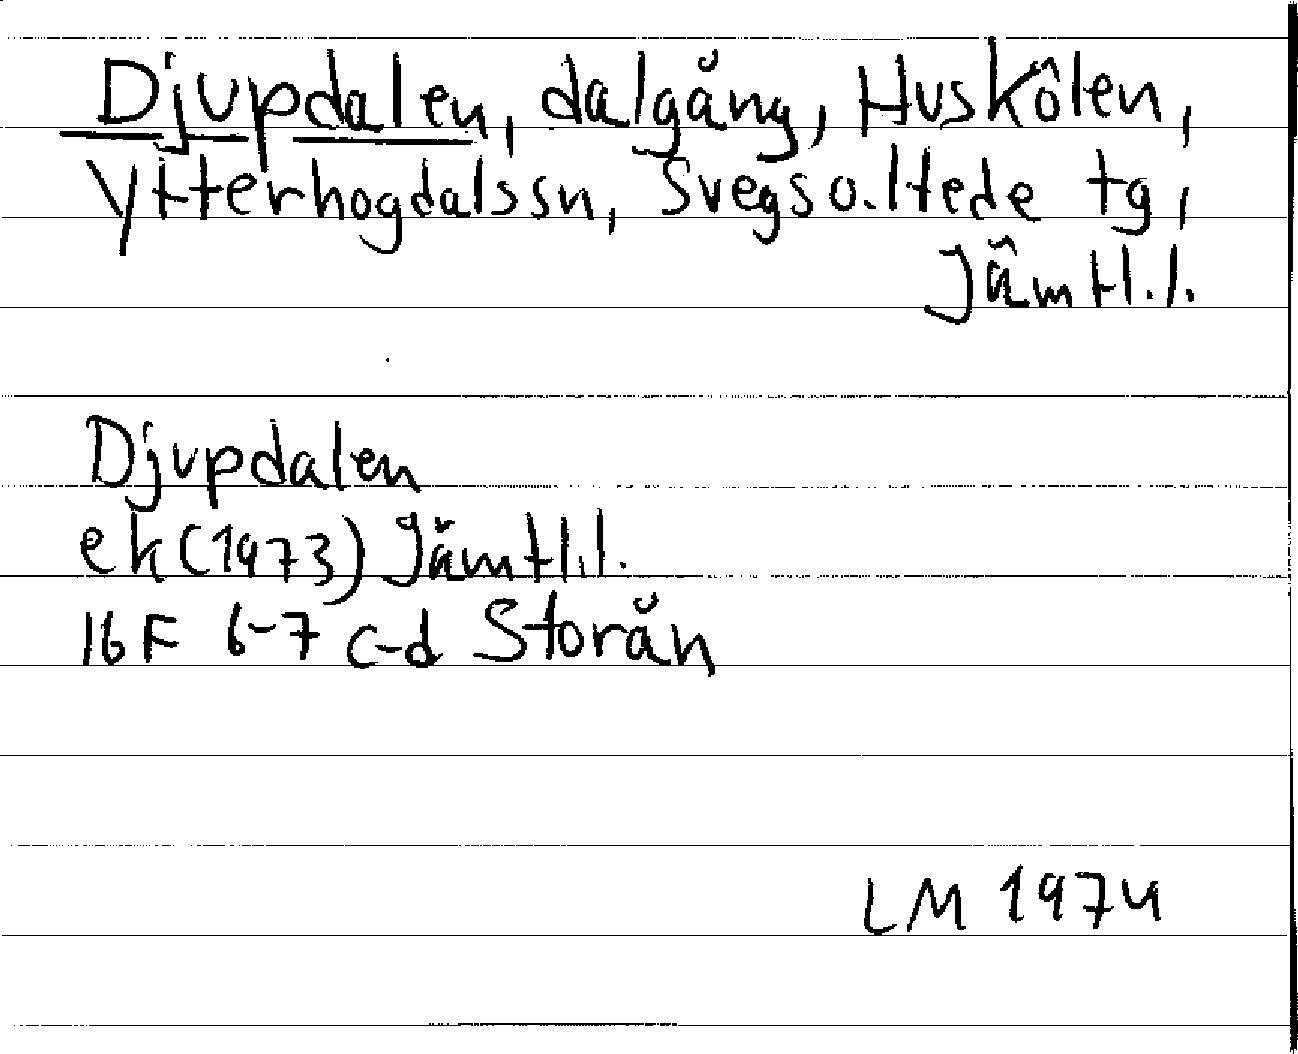 Djupdalen, dalgång, Huskölen,
Ytterhogdals sn, Svegs o. Hede tg,
Jämtl. l.
Djupdalen
ek (1973) Jämtl. l.
16F 6-7 c-d Storån
LM 1974